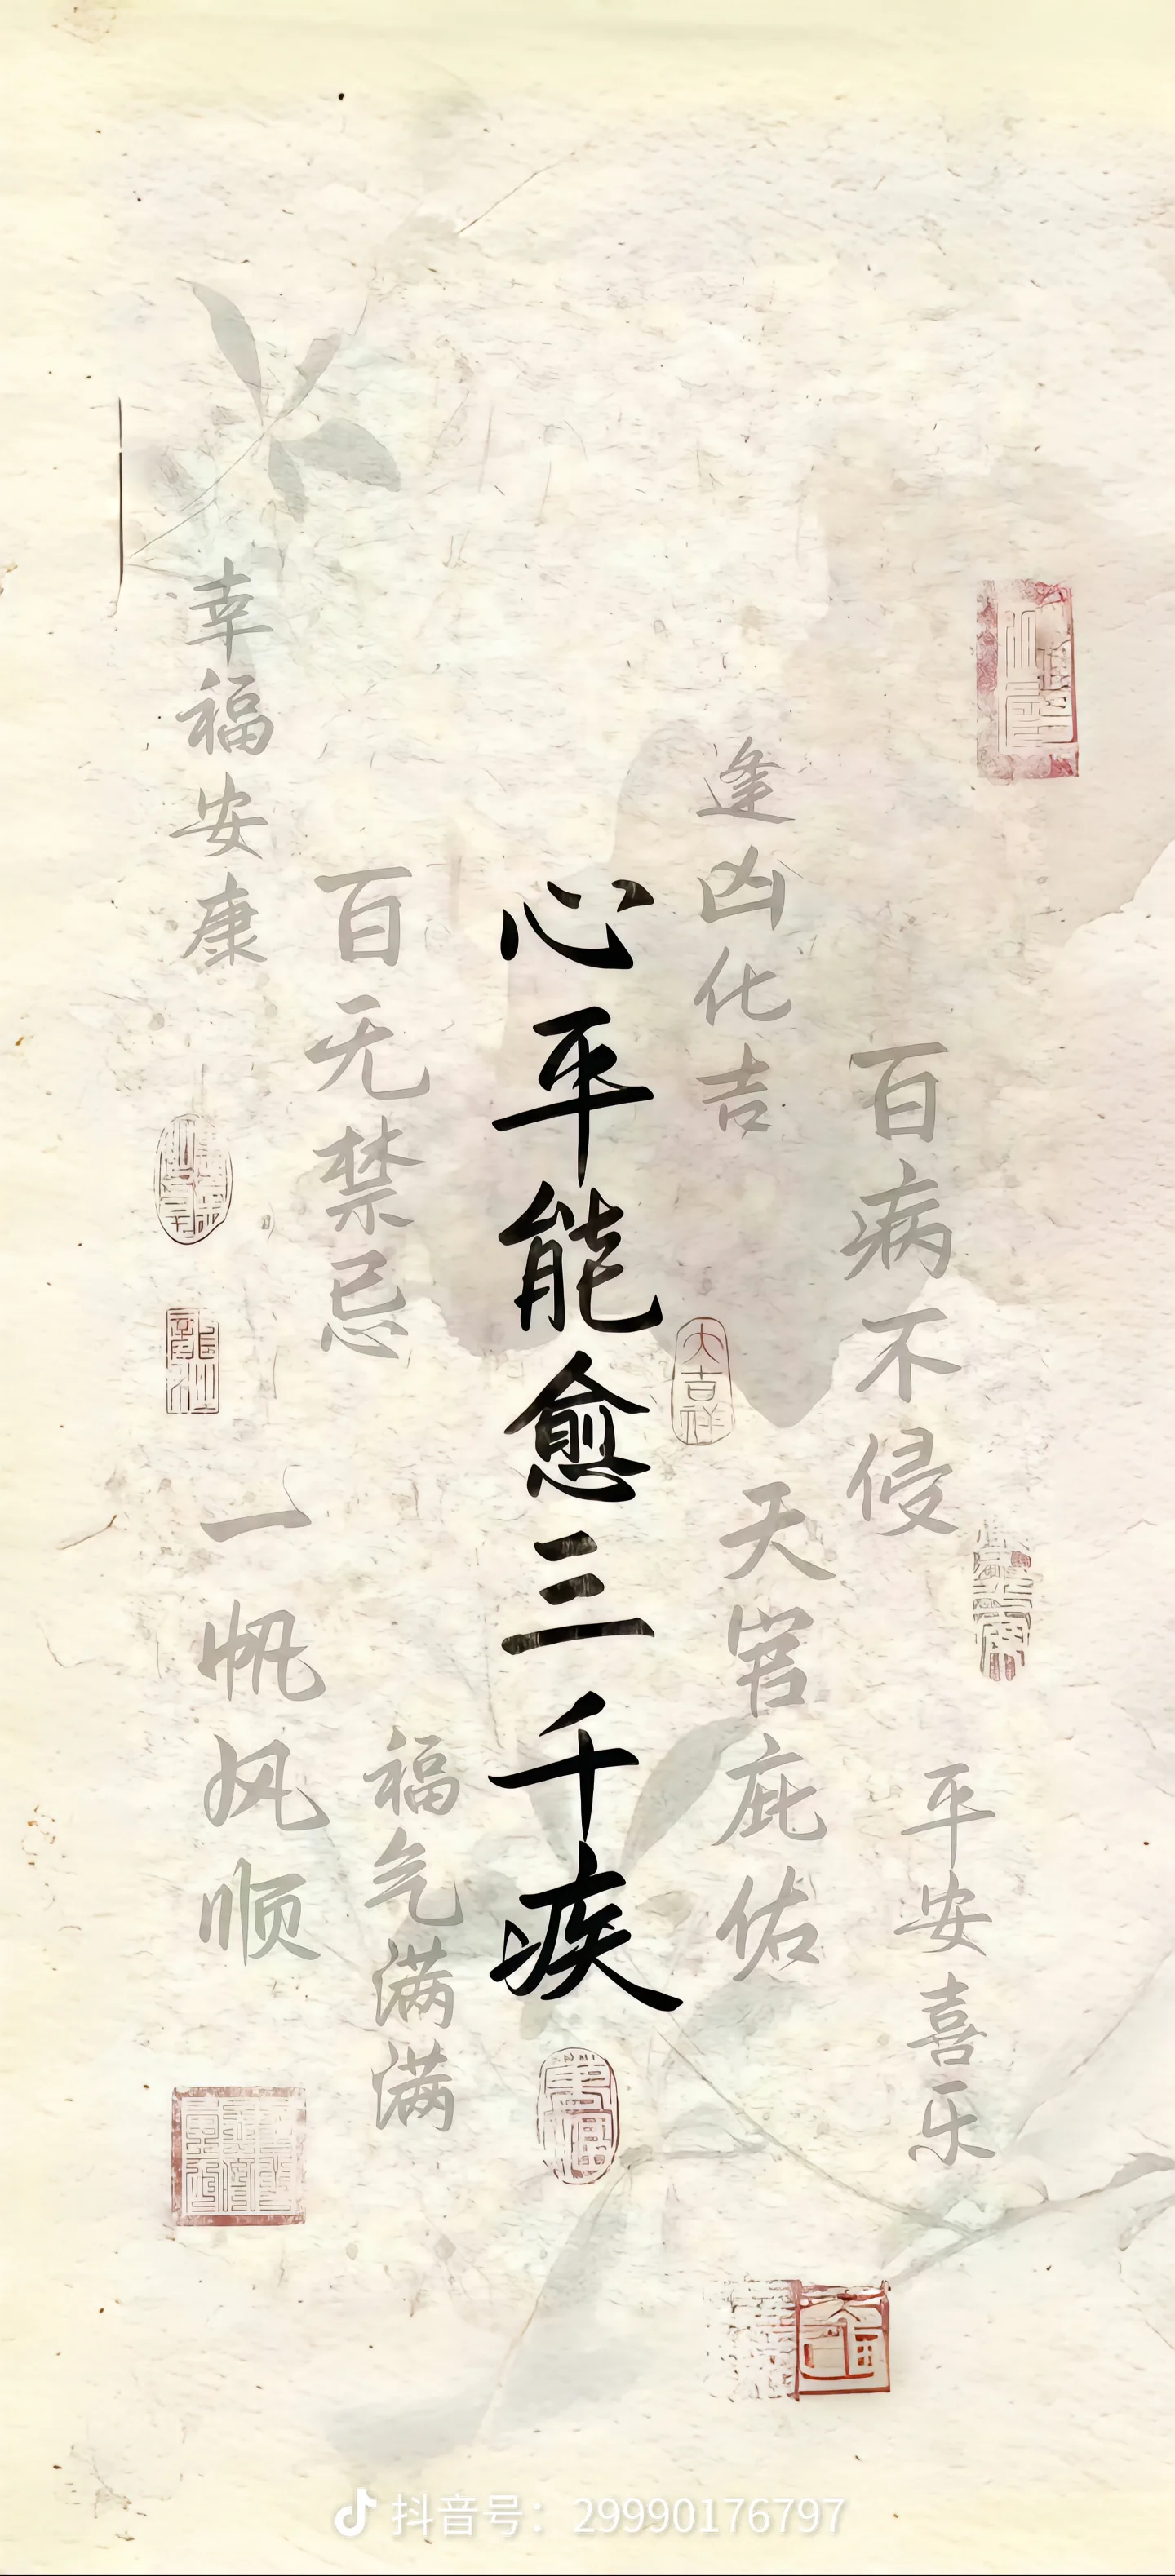 百病不侵
平安喜乐
逢凶化吉
天官庇佑
大吉祥
心平能愈三千疾
百无禁忌
福气满满
幸福安康
一帆风顺
抖音号：29990176797